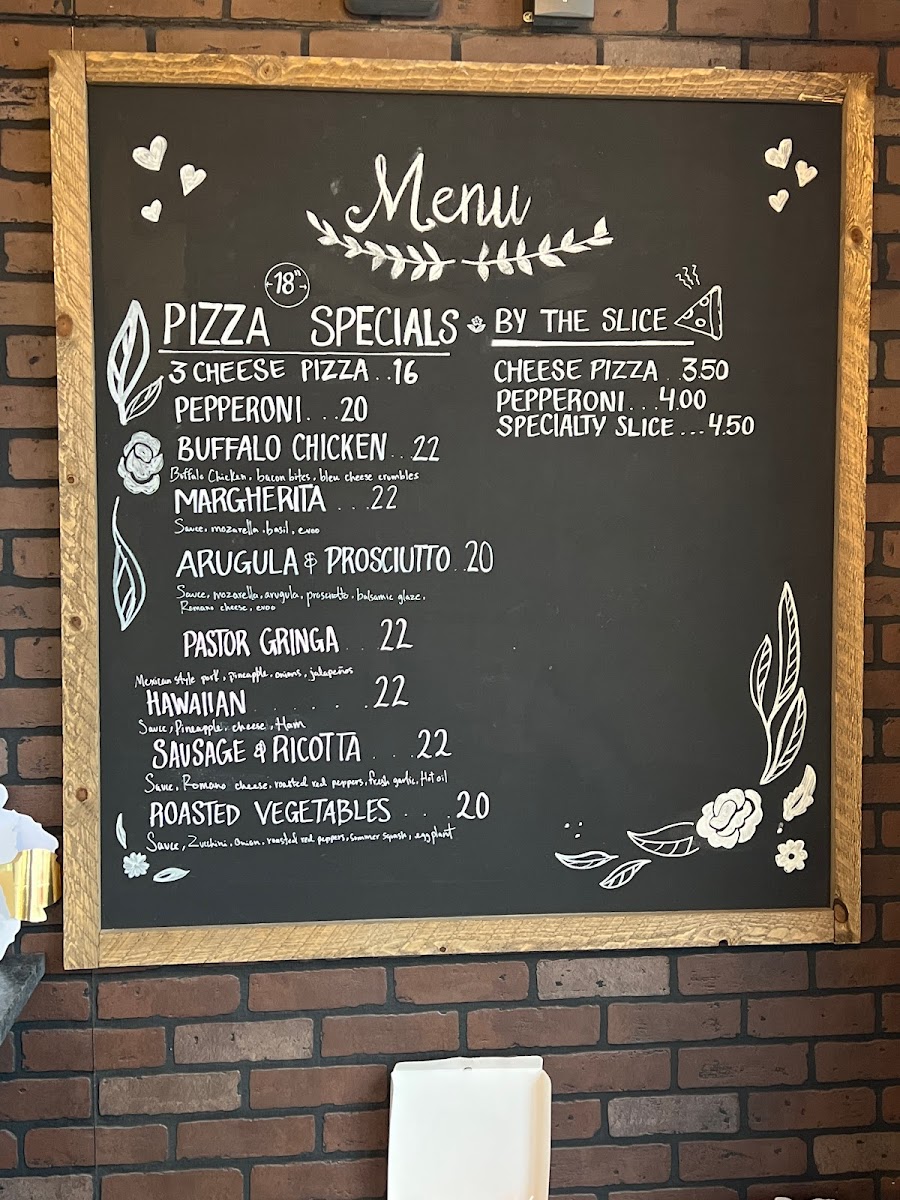 Menu
18"
PIZZA SPECIALS
3 CHEESE PIZZA..16
PEPPERONI...20
BUFFALO CHICKEN...22
Buffalo Chicken, bacon bites, bleu cheese crumbles
MARGHERITA ...22
Sauce, mozarella, basil, evoo
ARUGULA & PROSCIUTTO..20
Sauce, mozarella, arugula, prosciutto, balsamic glaze,
Romano cheese, evoo
PASTOR GRINGA ..22
Mexican style pork, pineapple, onions, jalapeños
HAWAIIAN ......22
Sauce, Pineapple, cheese, Ham
SAUSAGE & RICOTTA ...22
Sauce, Romano cheese, roasted red peppers, fresh garlic, Hot oil
ROASTED VEGETABLES ....20
Sauce, Zucchini, onion, roasted red peppers, summer squash, eggplant
BY THE SLICE
CHEESE PIZZA ..3.50
PEPPERONI...4.00
SPECIALTY SLICE ...4.50